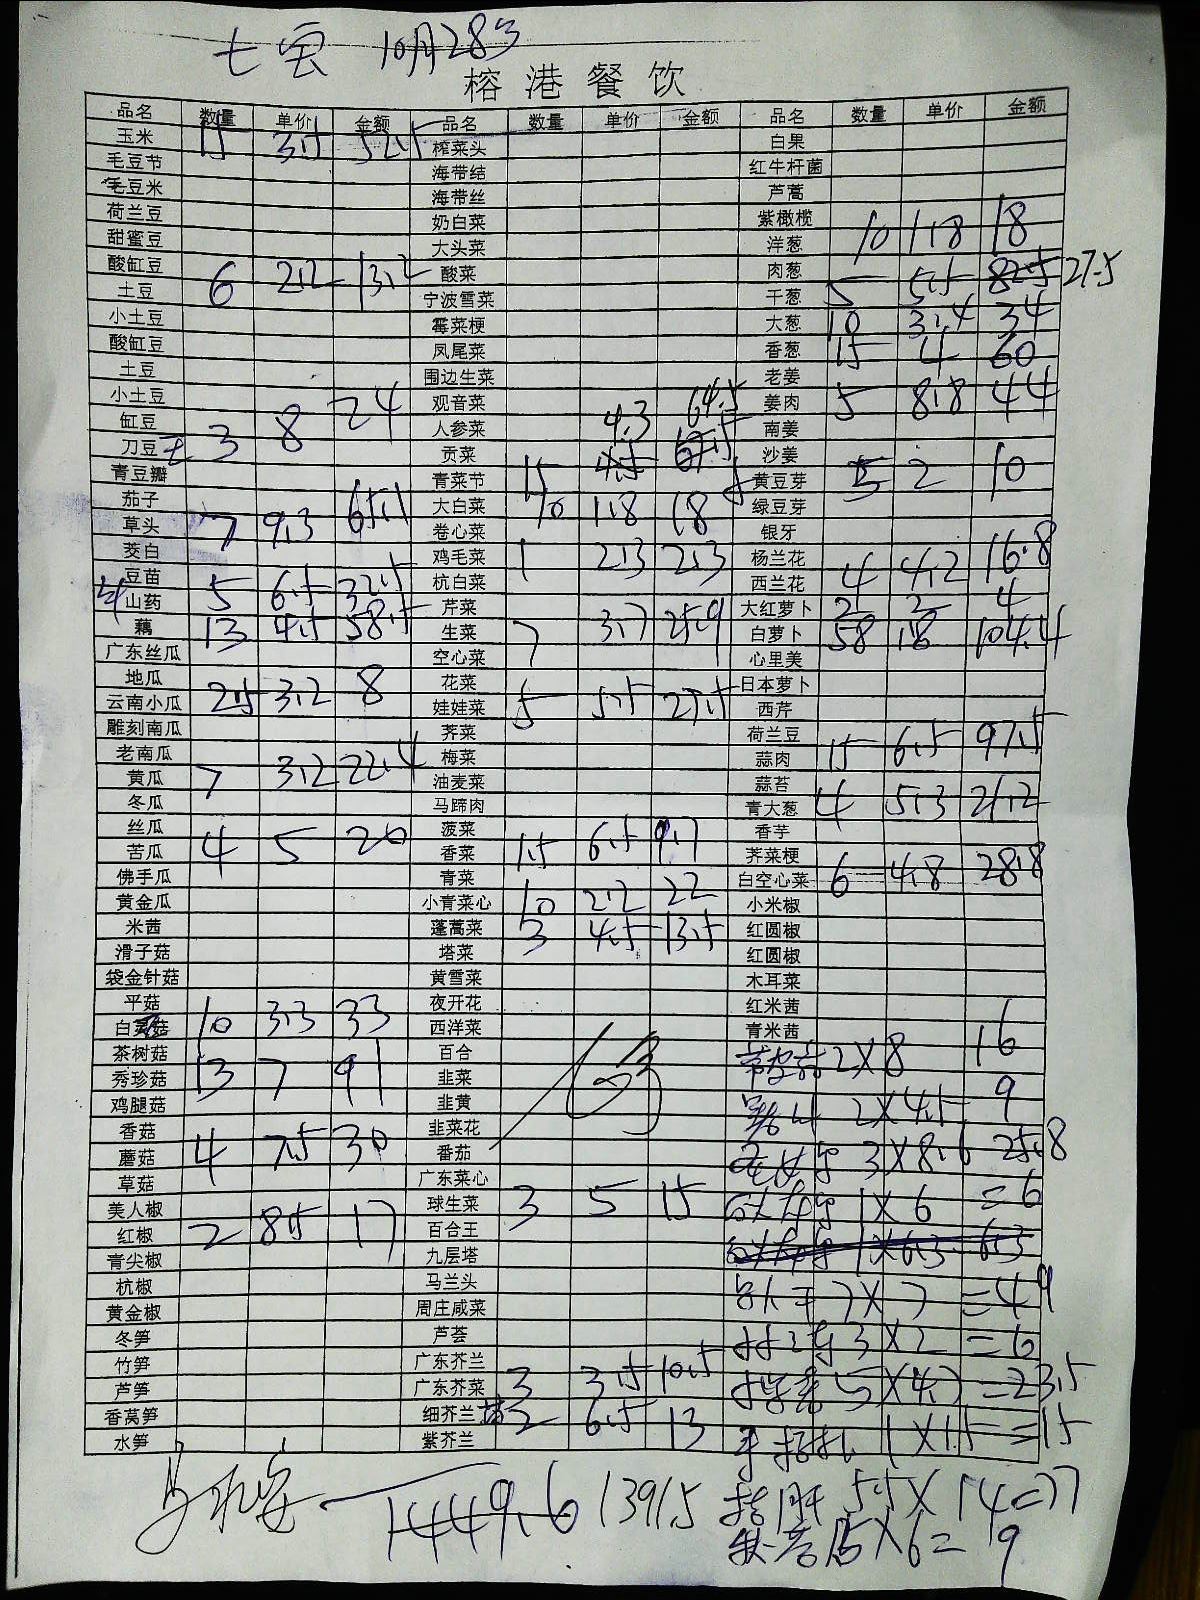 七宝 10月28号
榕港餐饮
品名 数量 单价 金额 品名 数量 单价 金额 品名 数量 单价 金额
玉米 15 3.5 52.5 榨菜头 白果
毛豆节 海带结 红牛杆菌
毛豆米 海带丝 芦蒿
荷兰豆 奶白菜 紫橄榄
甜蜜豆 大头菜 洋葱 10 1.8 18
酸缸豆 酸菜 肉葱
土豆 6 2.2 13.2 宁波雪菜 干葱 5 5.5 27.5
小土豆 霉菜梗 大葱 10 3.4 34
酸缸豆 凤尾菜 香葱 15 4 60
土豆 围边生菜 老姜
小土豆 观音菜 姜肉 5 8.8 44
缸豆 人参菜 南姜
刀豆 3 8 24 贡菜 沙姜
青豆瓣 青菜节 15 4.3 64.5 黄豆芽 5 2 10
茄子 大白菜 10 1.8 18 绿豆芽
草头 7 9.3 65.1 卷心菜 银牙
茭白 鸡毛菜 1 2.3 2.3 杨兰花
豆苗 杭白菜 西兰花 4 4.2 16.8
山药 5 6.5 32.5 芹菜 大红萝卜 2 2 4
藕 13 4.5 58.5 生菜 7 3.7 25.9 白萝卜 58 1.8 104.4
广东丝瓜 空心菜 心里美
地瓜 花菜 日本萝卜
云南小瓜 2.5 3.2 8 娃娃菜 5 5.5 27.5 西芹
雕刻南瓜 荠菜 荷兰豆
老南瓜 梅菜 蒜肉 15 6.5 97.5
黄瓜 7 3.2 22.4 油麦菜 蒜苔
冬瓜 马蹄肉 青大葱 4 5.3 21.2
丝瓜 菠菜 香芋
苦瓜 4 5 20 香菜 1.5 6.5 9.7 荠菜梗
佛手瓜 青菜 白空心菜 6 4.8 28.8
黄金瓜 小青菜心 10 2.2 22 小米椒
米茜 蓬蒿菜 3 4.5 13.5 红圆椒
滑子菇 塔菜 红圆椒
袋金针菇 黄雪菜 木耳菜
平菇 夜开花 红米茜
白灵菇 10 3.3 33 西洋菜 青米茜
茶树菇 百合 2X8 16
秀珍菇 13 7 91 韭菜
鸡腿菇 韭黄 2X4.5= 9
香菇 韭菜花
蘑菇 4 7.5 30 番茄 3X8.6 25.8
草菇 广东菜心
美人椒 球生菜 3 5 15 1X6 =6
红椒 2 8.5 17 百合王
青尖椒 九层塔 1X6.3 6.3
杭椒 马兰头
黄金椒 周庄咸菜 7X7 =49
冬笋 芦荟 3X2 =6
竹笋 广东芥兰
芦笋 广东芥菜 3 3.5 10.5 5X4.7 =23.5
香莴笋 细芥兰 2 6.5 13
水笋 紫芥兰 1X15 =15
1449.6 1391.5 5.5X14=77
X6= 9